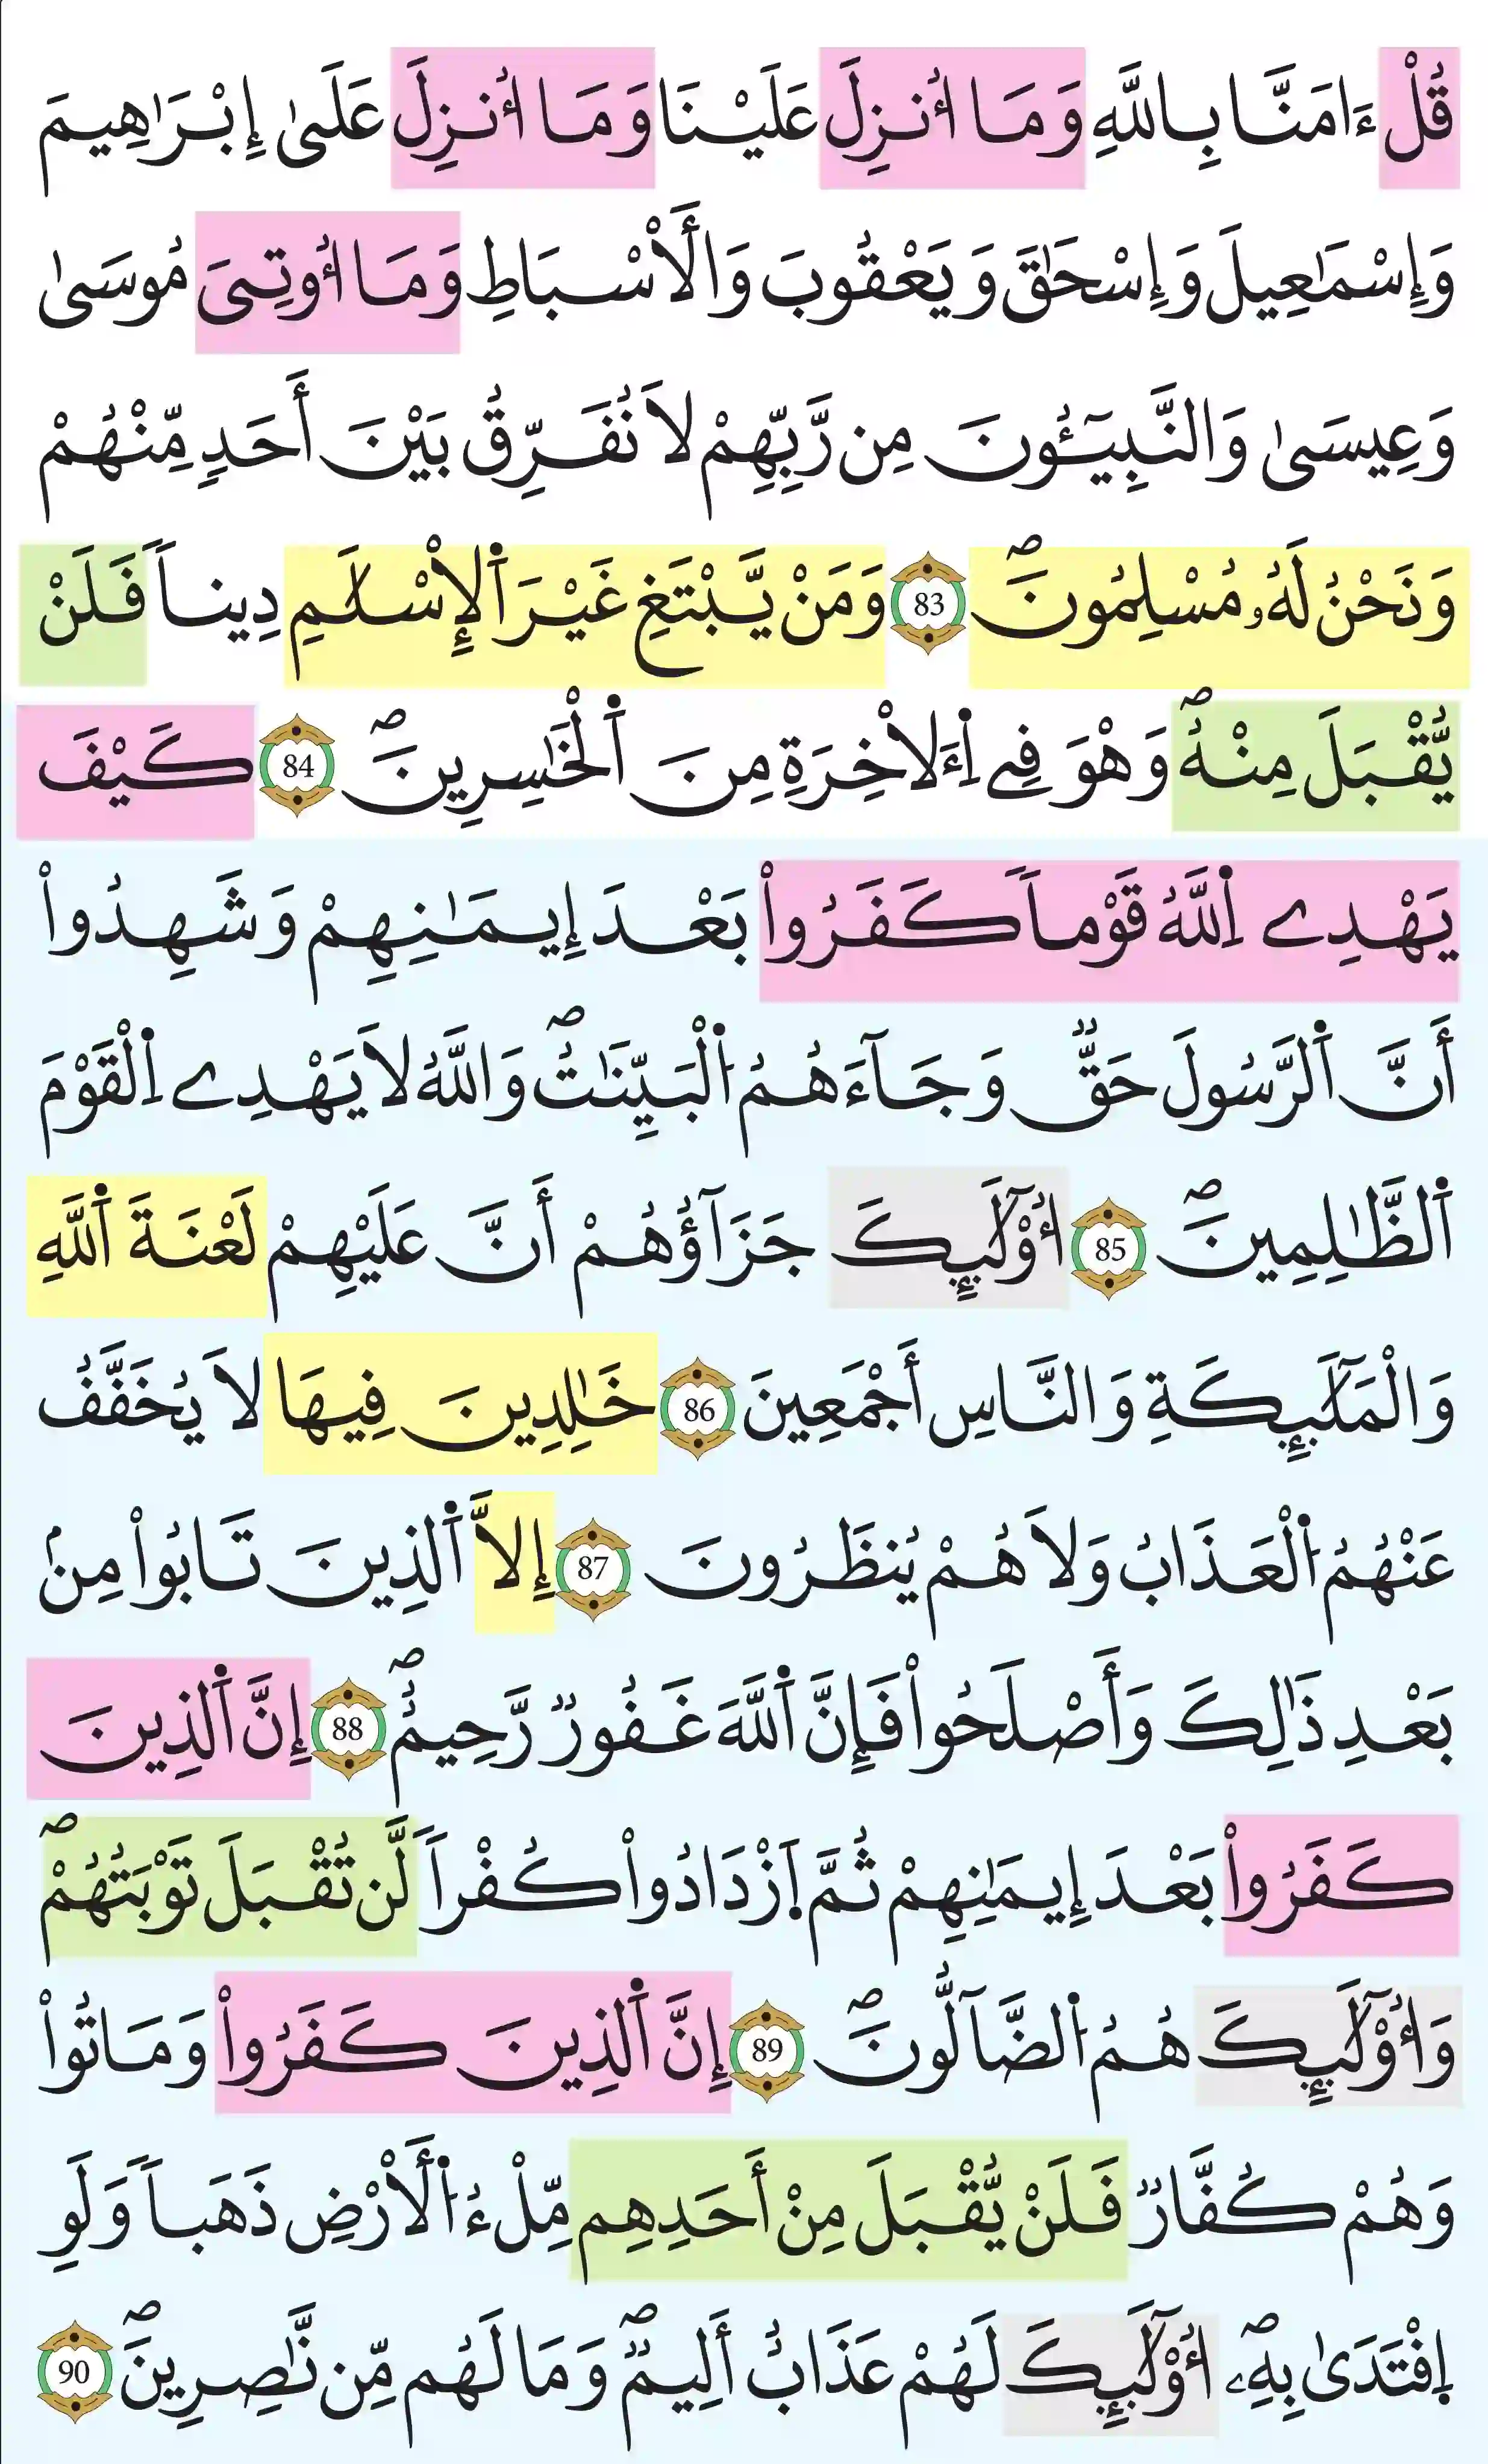 قُلْ ءَامَنَّا بِاللَّهِ وَمَا أُنزِلَ عَلَيْنَا وَمَا أُنزِلَ عَلَىٰ إِبْرَٰهِيمَ
وَإِسْمَٰعِيلَ وَإِسْحَٰقَ وَيَعْقُوبَ وَالْأَسْبَاطِ وَمَا أُوتِىَ مُوسَىٰ
وَعِيسَىٰ وَالنَّبِيٓـُٔونَ مِن رَّبِّهِمْ لَا نُفَرِّقُ بَيْنَ أَحَدٍ مِّنْهُمْ
وَنَحْنُ لَهُۥ مُسْلِمُونَۖ 83 وَمَنْ يَّبْتَغِ غَيْرَ اَ۬لْإِسْلَٰمِ دِيناً فَلَنْ
يُّقْبَلَ مِنْهُۖ وَهْوَ فِے اِ۬لَأخِرَةِ مِنَ اَ۬لْخَٰسِرِينَۖ 84 كَيْفَ
يَهْدِے اِ۬للَّهُ قَوْماً كَفَرُواْ بَعْدَ إِيمَٰنِهِمْ وَشَهِدُواْ
أَنَّ اَ۬لرَّسُولَ حَقٌّ وَجَآءَهُمُ اُ۬لْبَيِّنَٰتُۖ وَاللَّهُ لَا يَهْدِے اِ۬لْقَوْمَ
اَ۬لظَّٰلِمِينَۖ 85 أُوْلَٰٓئِكَ جَزَآؤُهُمْ أَنَّ عَلَيْهِمْ لَعْنَةَ اَ۬للَّهِ
وَالْمَلَٰٓئِكَةِ وَالنَّاسِ أَجْمَعِينَ 86 خَٰلِدِينَ فِيهَا لَا يُخَفَّفُ
عَنْهُمُ اُ۬لْعَذَابُ وَلَا هُمْ يُنظَرُونَ 87 إِلَّا اَ۬لذِينَ تَابُواْ مِنۢ
بَعْدِ ذَٰلِكَ وَأَصْلَحُواْ فَإِنَّ اَ۬للَّهَ غَفُورٌ رَّحِيمٌۖ 88 إِنَّ اَ۬لذِينَ
كَفَرُواْ بَعْدَ إِيمَٰنِهِمْ ثُمَّ اَ۪زْدَادُواْ كُفْراً لَّن تُقْبَلَ تَوْبَتُهُمْۖ
وَأُوْلَٰٓئِكَ هُمُ اُ۬لضَّآلُّونَۖ 89 إِنَّ اَ۬لذِينَ كَفَرُواْ وَمَاتُواْ
وَهُمْ كُفَّارٌ فَلَنْ يُّقْبَلَ مِنْ أَحَدِهِم مِّلْءُ اُ۬لْأَرْضِ ذَهَباً وَلَوِ
اِ۪فْتَدَىٰ بِهِۦۖ أُوْلَٰٓئِكَ لَهُمْ عَذَابٌ أَلِيمٌۖ وَمَا لَهُم مِّن نَّٰصِرِينَۖ 90